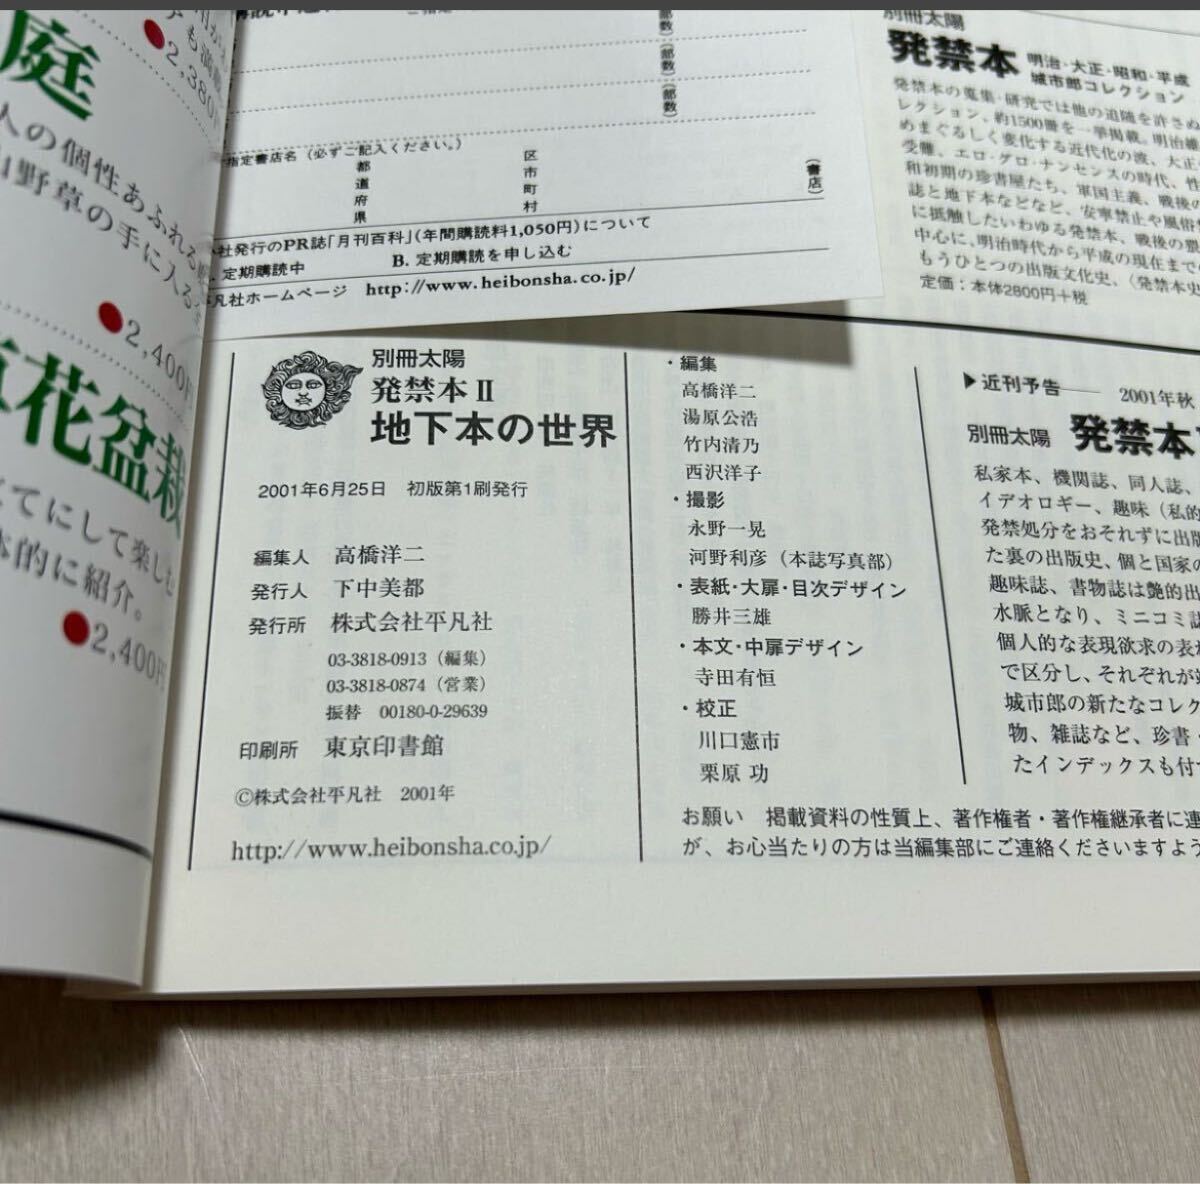 庭
●2,380円
人の個性あふれる
山野草の手に入る
●2,400円
花盆栽
てにして楽しむ
体的に紹介。
●2,400円
(部数)
(部数)
(部数)
指定書店名(必ずご記入ください。)
都道府県
区市町村
(書店)
社発行のPR誌「月刊百科」(年間購読料1,050円)について
定期購読中
B. 定期購読を申し込む
凡社ホームページ http://www.heibonsha.co.jp/
別冊太陽
発禁本 明治・大正・昭和・平成
城市郎コレクション
発禁本の蒐集・研究では他の追随を許さぬ
レクション、約1500冊を一挙掲載。明治維
めまぐるしく変化する近代化の波、大正
受難、エロ・グロ・ナンセンスの時代、性
和初期の珍書屋たち、軍国主義、戦後の
誌と地下本などなど、安寧禁止や風俗
に抵触したいわゆる発禁本、戦後の
中心に、明治時代から平成の現在まで
もうひとつの出版文化史、〈発禁本史
定価：本体2800円＋税
別冊太陽
発禁本Ⅱ
地下本の世界
2001年6月25日 初版第1刷発行
編集人 高橋洋二
発行人 下中美都
発行所 株式会社平凡社
03-3818-0913（編集）
03-3818-0874（営業）
振替 00180-0-29639
印刷所 東京印書館
©株式会社平凡社 2001年
http://www.heibonsha.co.jp/
・編集
高橋洋二
湯原公浩
竹内清乃
西沢洋子
・撮影
永野一晃
河野利彦（本誌写真部）
・表紙・大扉・目次デザイン
勝井三雄
・本文・中扉デザイン
寺田有恒
・校正
川口憲市
栗原 功
▶近刊予告 2001年秋
別冊太陽 発禁本
私家本、機関誌、同人誌、
イデオロギー、趣味（私的
発禁処分をおそれずに出版
た裏の出版史、個と国家の
趣味誌、書物誌は艶的出
水脈となり、ミニコミ誌
個人的な表現欲求の表
で区分し、それぞれが
城市郎の新たなコレク
物、雑誌など、珍書・
たインデックスも付
お願い 掲載資料の性質上、著作権者・著作権継承者に連
が、お心当たりの方は当編集部にご連絡くださいますよう